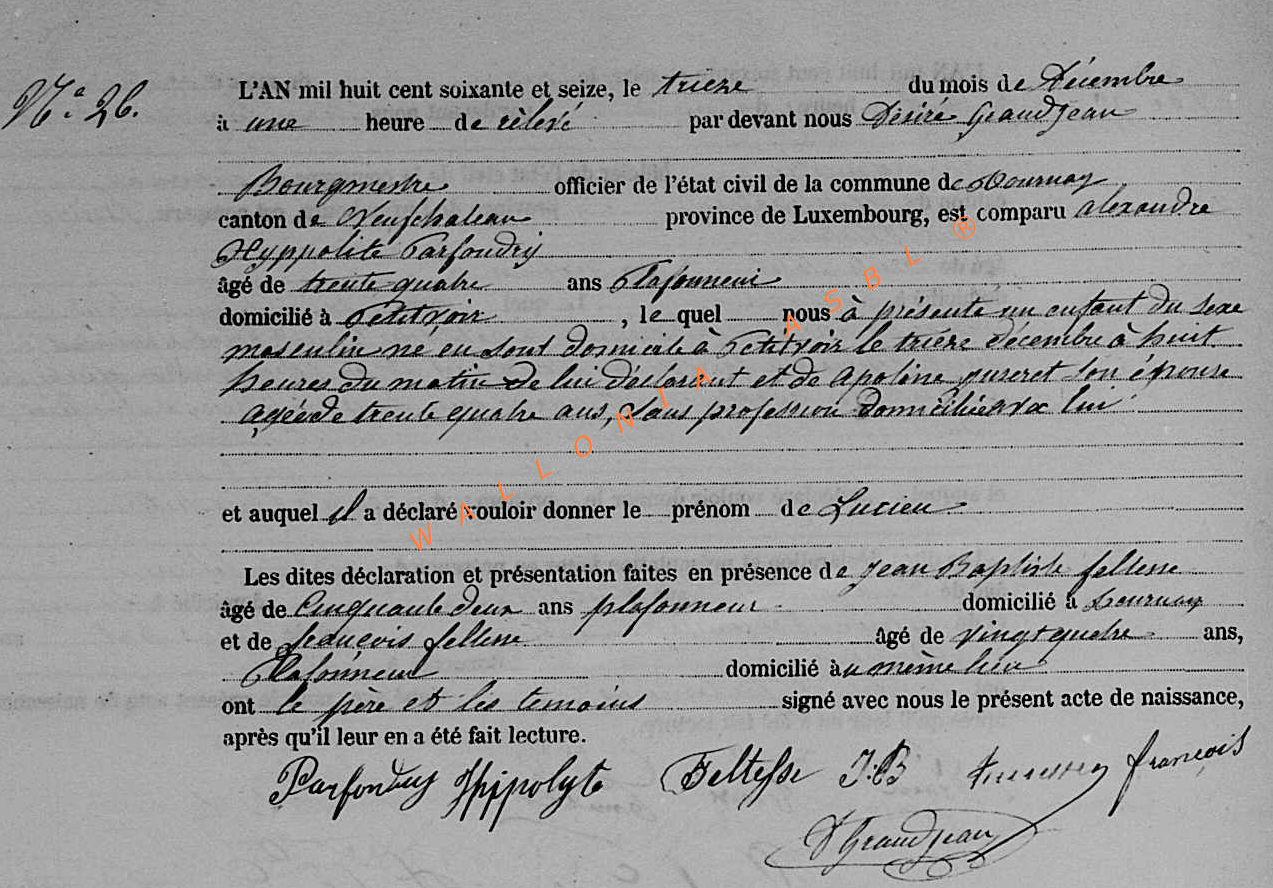 N.° 26.
L'AN mil huit cent soixante et seize, le trieze du mois de Décembre
à une heure de rélevé par devant nous Désiré Grandjean
Bourgmestre officier de l'état civil de la commune de Tournay
canton de Neufchateau province de Luxembourg, est comparu alexandre
Hyppolite Parfondry
âgé de trente quatre ans Plafonneur
domicilié à Petitvoir, le quel nous à présenté un enfant du sexe
masculin né en sont domicile à Petitvoir le trieze décembre à huit
heures du matin de lui déclarant et de Apoline son épouse
agée de trente quatre ans, sans profession domiciliée avec lui
et auquel il a déclaré vouloir donner le prénom de Lucien
Les dites déclaration et présentation faites en présence de Jean Baptiste feltesse
âgé de Cinquante deux ans plafonneur domicilié à Tournay
et de françois feltesse âgé de vingt quatre ans,
Plafonneur domicilié au même lieu
ont le père et les temoins signé avec nous le présent acte de naissance,
après qu'il leur en a été fait lecture.
Parfondry Hyppolyte Feltesse J.B françois
D Grandjean
WALLONIA ASBL ®